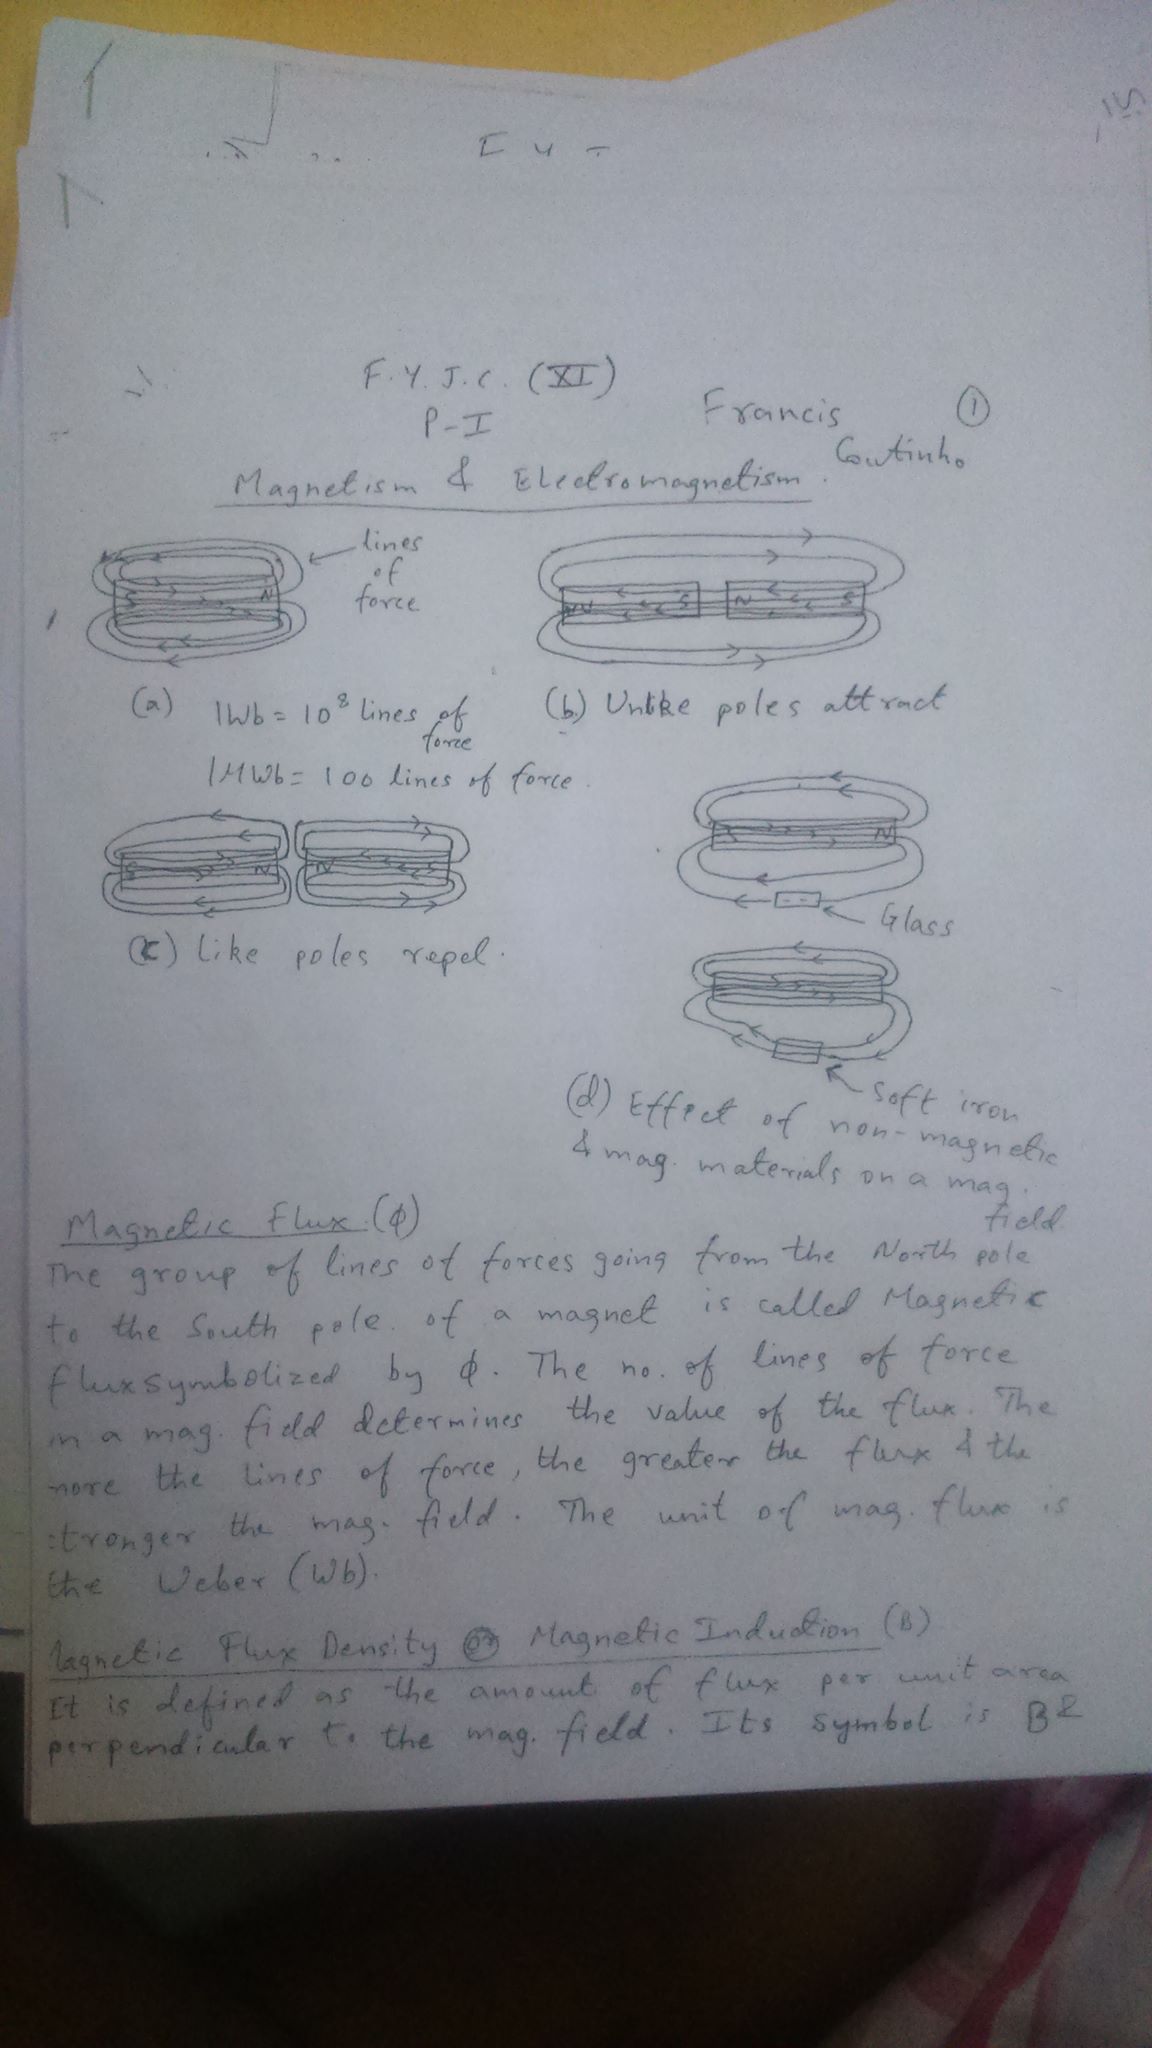 F.Y.J.C. (XI)
P-I
Francis
Coutinho
①
Magnetism & Electromagnetism.
lines
of
force
S N
N S N S
(a) 1Wb = 10⁸ lines of
force
1MWb = 100 lines of force.
(b) Unlike poles attract
S N N S
(c) Like poles repel.
S N
Glass
Soft iron
(d) Effect of non-magnetic
& mag. materials on a mag.
field
Magnetic Flux (ϕ)
The group of lines of forces going from the North pole
to the South pole of a magnet is called Magnetic
flux symbolized by ϕ. The no. of lines of force
in a mag. field determines the value of the flux. The
more the lines of force, the greater the flux & the
stronger the mag. field. The unit of mag. flux is
the Weber (Wb).
Magnetic Flux Density or Magnetic Induction (B)
It is defined as the amount of flux per unit area
perpendicular to the mag. field. Its symbol is B &